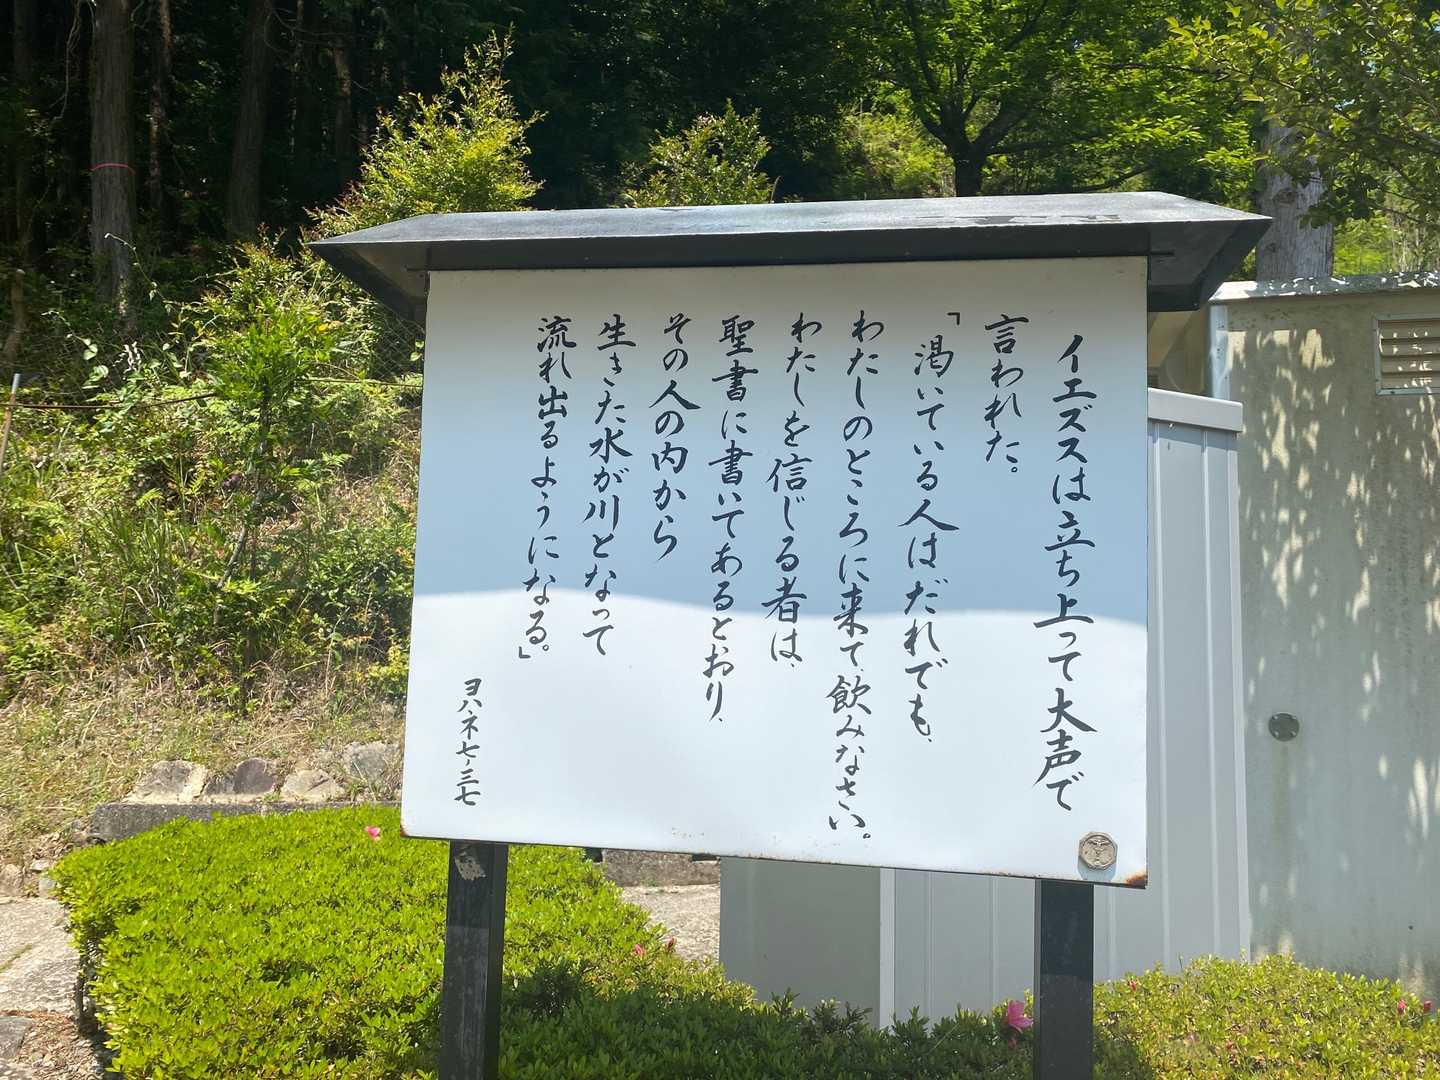 イエズスは立ち上って大声で
言われた。
「渇いている人はだれでも、
わたしのところに来て、飲みなさい。
わたしを信じる者は、
聖書に書いてあるとおり、
その人の内から
生きた水が川となって
流れ出るようになる。」
ヨハネ七ノ三七